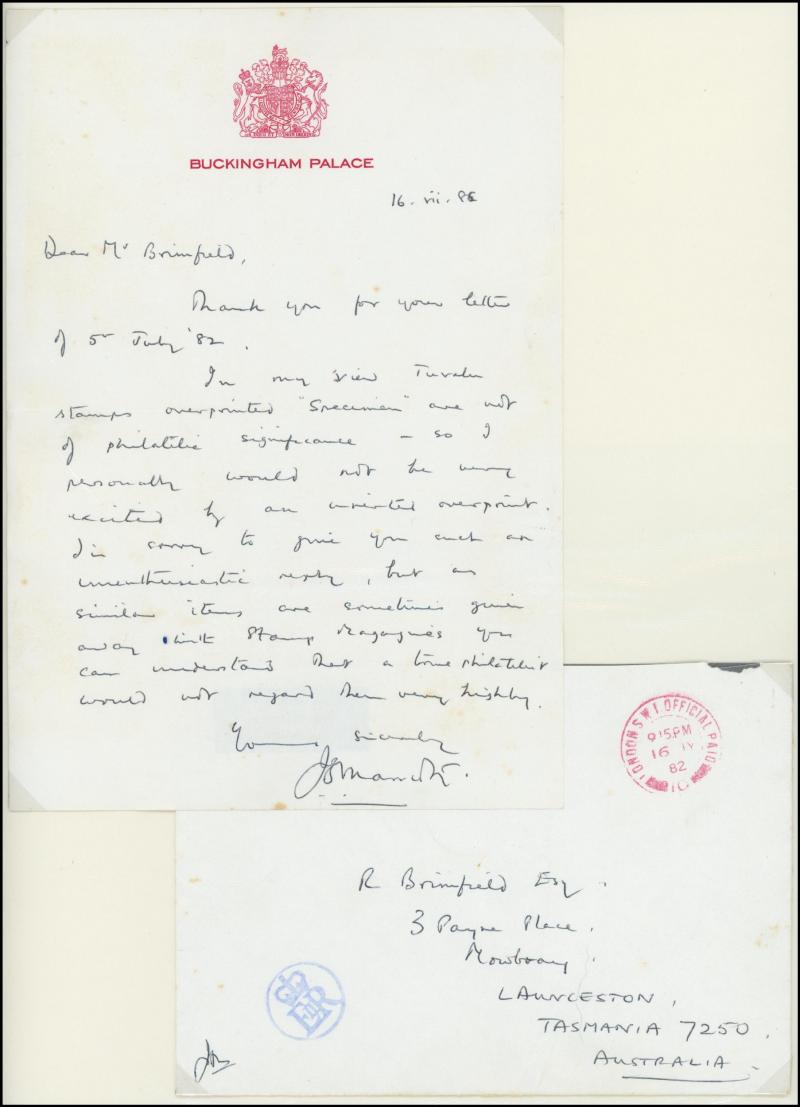 BUCKINGHAM PALACE
16. vii. 82
Dear Mr Brimfield,
Thank you for your letter
of 5th July '82.
In my view Tuvalu
stamps overprinted "Specimen" are not
of philatelic significance - so I
personally would not be very
excited by an inverted overprint.
I'm sorry to give you such an
unenthusiastic reply, but as
similar items are sometimes given
away with Stamp Magazines you
can understand that a true philatelist
would not regard them very highly.
Yours sincerely
LONDON S.W.1. OFFICIAL PAID
9 15 PM
16 JY
82
10
R Brimfield Esq.
3 Payne Place.
Mowbray.
LAUNCESTON,
TASMANIA 7250.
AUSTRALIA.
EIIR